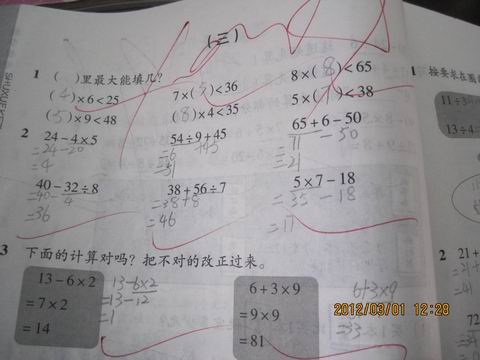 (三)
1 ( )里最大能填几?
(4)×6<25 7×(5)<36 8×(8)<65
(5)×9<48 (8)×4<35 5×(7)<38
2 24-4×5 54÷9+45 65+6-50
=24-20 =6 +45 =71 -50
=4 =51 =21
40-32÷8 38+56÷7 5×7-18
=40-4 =38+8 =35-18
=36 =46 =17
3 下面的计算对吗?把不对的改正过来。
13-6×2 13-6×2 6+3×9 6+3×9
=7×2 =13-12 =9×9
=14 =1 =81 =33
1 按要求在圈
11÷3
13÷4
2 21÷
72
SHUXUE
2012/03/01 12:29